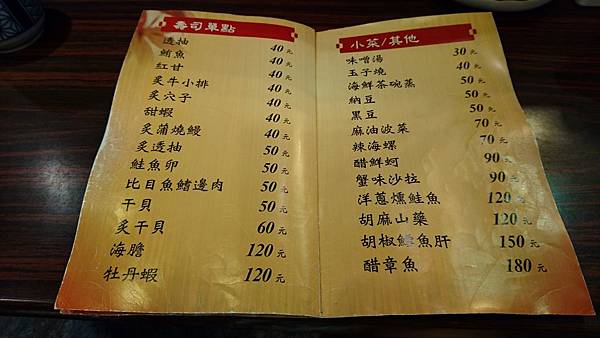 壽司單點
透抽 40元
鮪魚 40元
紅甘 40元
炙牛小排 40元
炙穴子 40元
甜蝦 40元
炙蒲燒鰻 40元
炙透抽 50元
鮭魚卵 50元
比目魚鰭邊肉 50元
干貝 50元
炙干貝 60元
海膽 120元
牡丹蝦 120元
小菜/其他
味噌湯 30元
玉子燒 40元
海鮮茶碗蒸 50元
納豆 50元
黑豆 50元
麻油波菜 70元
辣海螺 70元
醋鮮蚵 90元
蟹味沙拉 90元
洋蔥燻鮭魚 120元
胡麻山藥 120元
胡椒鱈魚肝 150元
醋章魚 180元